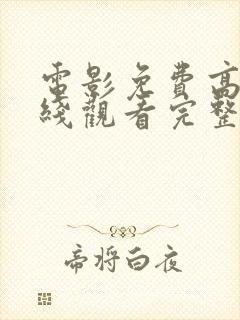 電影免費高
綫觀看完整
帝將白夜